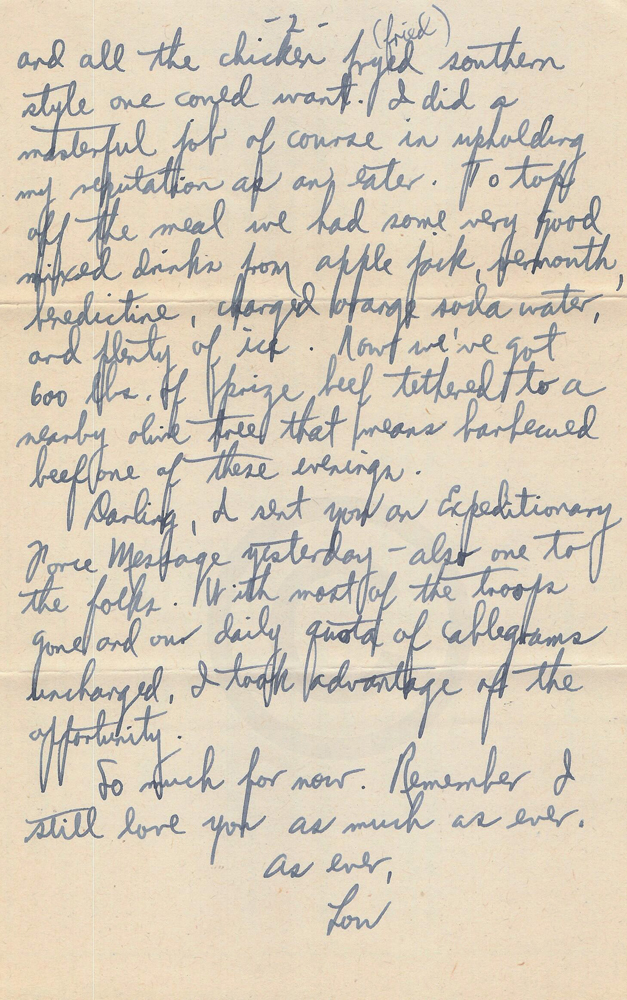 -2-
(fried)
and all the chicken fryed southern
style one could want. I did a
masterful job of course in upholding
my reputation as an eater. To top
off the meal we had some very good
mixed drinks from apple jack, vermouth,
benedictine, charged orange soda water,
and plenty of ice. Now we've got
600 lbs. of prize beef tethered to a
nearby olive tree that means barbecued
beef one of these evenings.
Darling, I sent you an Expeditionary
Force Message yesterday - also one to
the folks. With most of the troops
gone and our daily quota of cablegrams
unchanged, I took advantage of the
opportunity.
So much for now. Remember I
still love you as much as ever.
As ever,
Lou